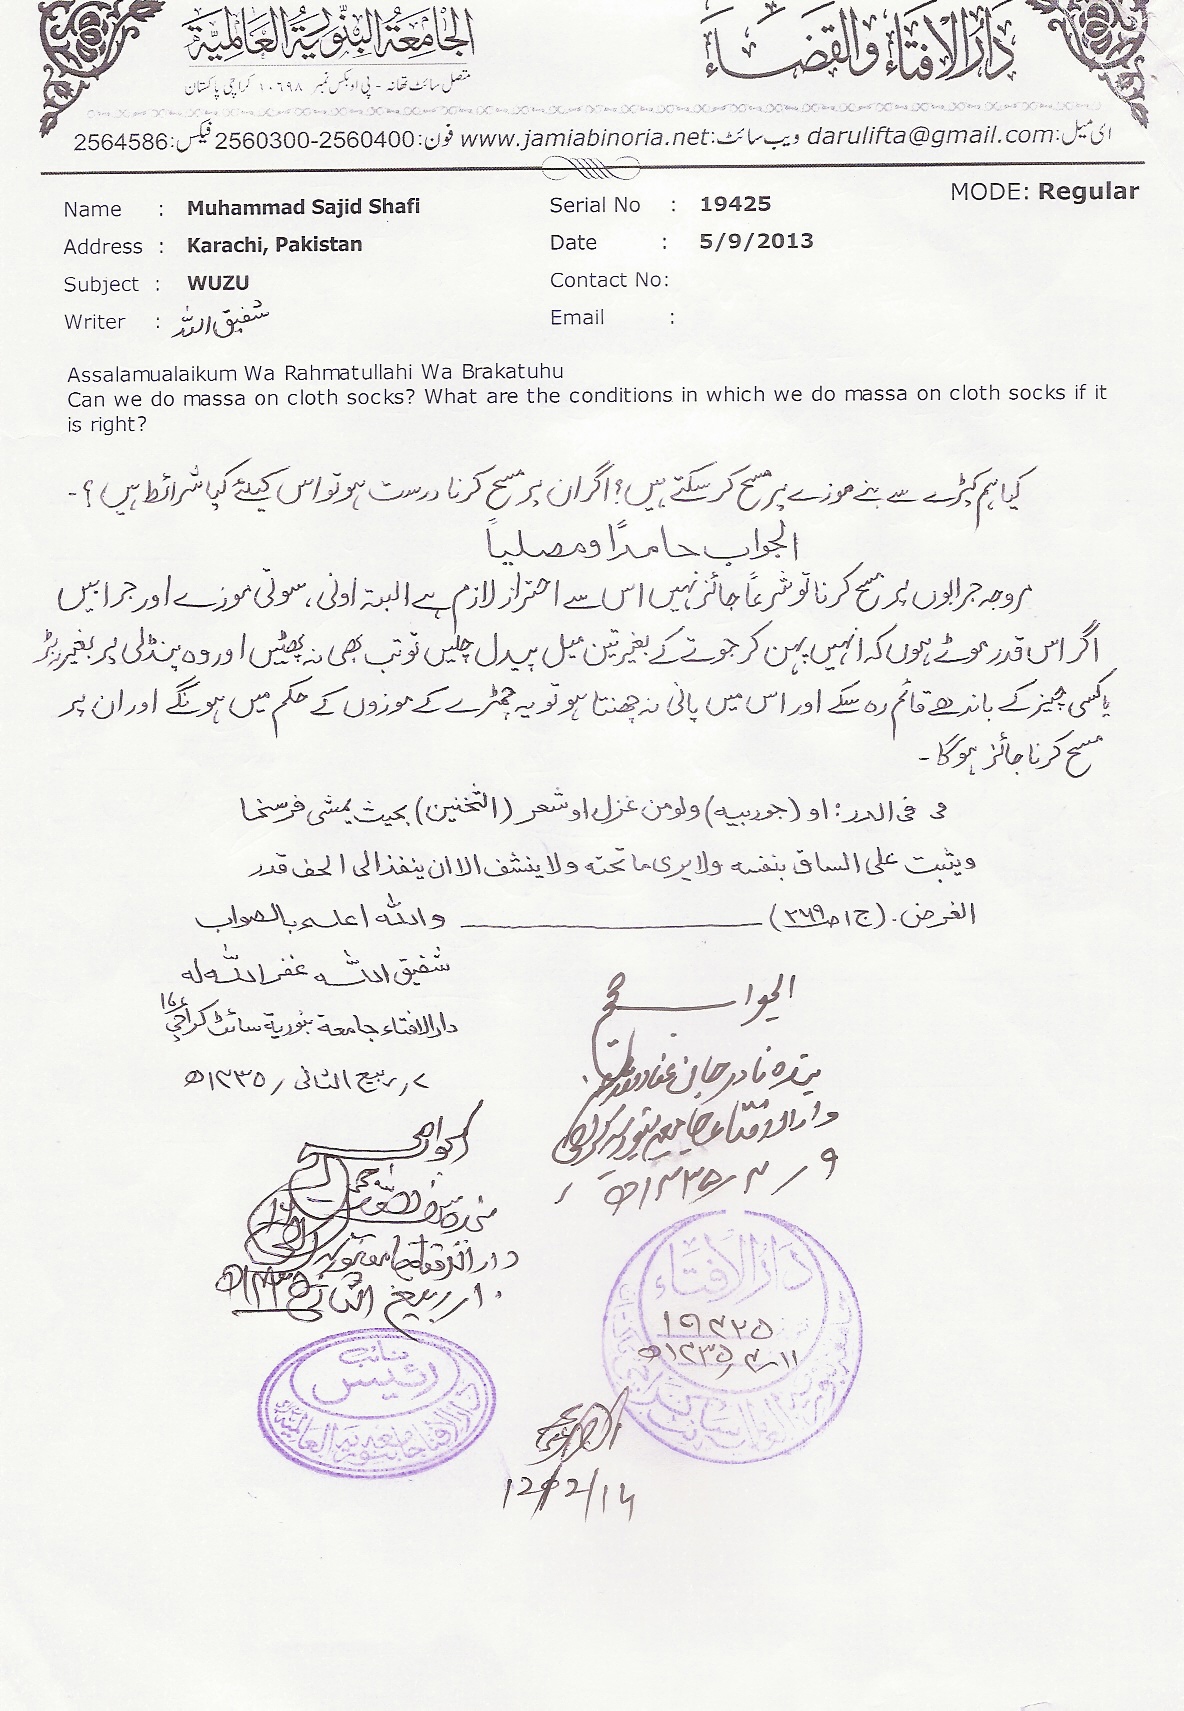 الجامعة البنورية العالمية
دار الافتاء والقضاء
متصل سائٹ تھانہ - پی او بکس نمبر ۱۰٦۹۸ کراچی پاکستان
ای میل:darulifta@gmail.com ویب سائٹ:www.jamiabinoria.net فون:2560300-2560400 فیکس:2564586
MODE: Regular
Name : Muhammad Sajid Shafi Serial No : 19425
Address : Karachi, Pakistan Date : 5/9/2013
Subject : WUZU Contact No:
Writer : شفیق اللہ Email :
Assalamualaikum Wa Rahmatullahi Wa Brakatuhu
Can we do massa on cloth socks? What are the conditions in which we do massa on cloth socks if it
is right?
کیا ہم کپڑے سے بنے موزے پر مسح کر سکتے ہیں؟ اگر ان پر مسح کرنا درست ہو تو اس کیلئے کیا شرائط ہیں؟-
الجواب حامدًا ومصلیاً
مروجہ جرابوں پر مسح کرنا تو شرعاً جائز نہیں اس سے احتراز لازم ہے البتہ اونی، سوتی موزے اور جرابیں
اگر اس قدر موٹے ہوں کہ انہیں پہن کر جوتے کے بغیر تین میل پیدل چلیں تو تب بھی نہ پھٹیں اور وہ پنڈلی پر بغیر ربڑ
یا کسی چیز کے باندھے قائم رہ سکے اور اس میں پانی نہ چھنتا ہو تو یہ چمڑے کے موزوں کے حکم میں ہونگے اور ان پر
مسح کرنا جائز ہوگا -
فی الدر: او (جوربیه) ولو من غزل او شعر (الثخینین) بحیث یمشی فرسخا
ویثبت علی الساق بنفسه ولا یری ما تحته ولا ینشف الا ان ینفذ الی الخف قدر
الغرض. (ج۱ ص۲٦۹) والله اعلم بالصواب
شفیق اللہ غفر اللہ له
دار الافتاء جامعة بنوریة سائٹ کراچی
۷ر ربیع الثانی ر ۱۴۳۵ھ
الجواب صحیح
بندہ نادر جان
دار الافتاء جامعہ بنوریہ کراچی
۹ ر ۴ ر ۱۴۳۵ھ
الجواب صحیح
دار الافتاء جامعہ بنوریہ
۱۰ر ربیع الثانی ۱۴۳۵ھ
دار الافتاء
۱۹۴۲۵
۱۱-۴-۱۴۳۵ھ
نائب
رئیس
دار الافتاء جامعہ بنوریہ العالمیة
12/2/14